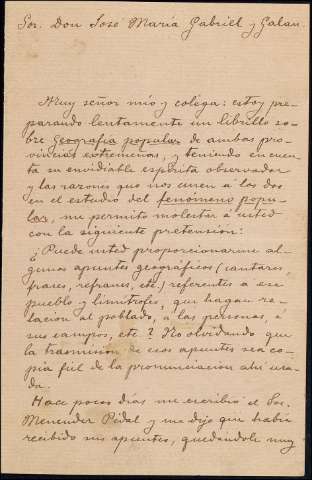 Sor. Don José María Gabriel y Galan.
Muy señor mío y colega: estoy pre-
parando lentamente un librillo so-
bre geografía popular de ambas pro-
vincias extremeñas, y teniendo en cuen-
ta su envidiable espíritu observador
y las razones que nos unen á los dos
en el estudio del fenomeno popu-
lar, me permito molestar á usted
con la siguiente pretensión:
¿Puede usted proporcionarme al-
gunos apuntes geográficos (cantares,
frases, refranes, etc.) referentes a ese
pueblo y limítrofes, que hagan re-
lacion al poblado, á las personas, á
sus campos, etc.? No olvidando que
la trasmisión de esos apuntes sea co-
pia fiel de la pronunciacion ahí usa-
da.
Hace pocos días me escribió el Sor.
Menendez Pidal y me dijo que había
recibido sus apuntes, quedandole muy